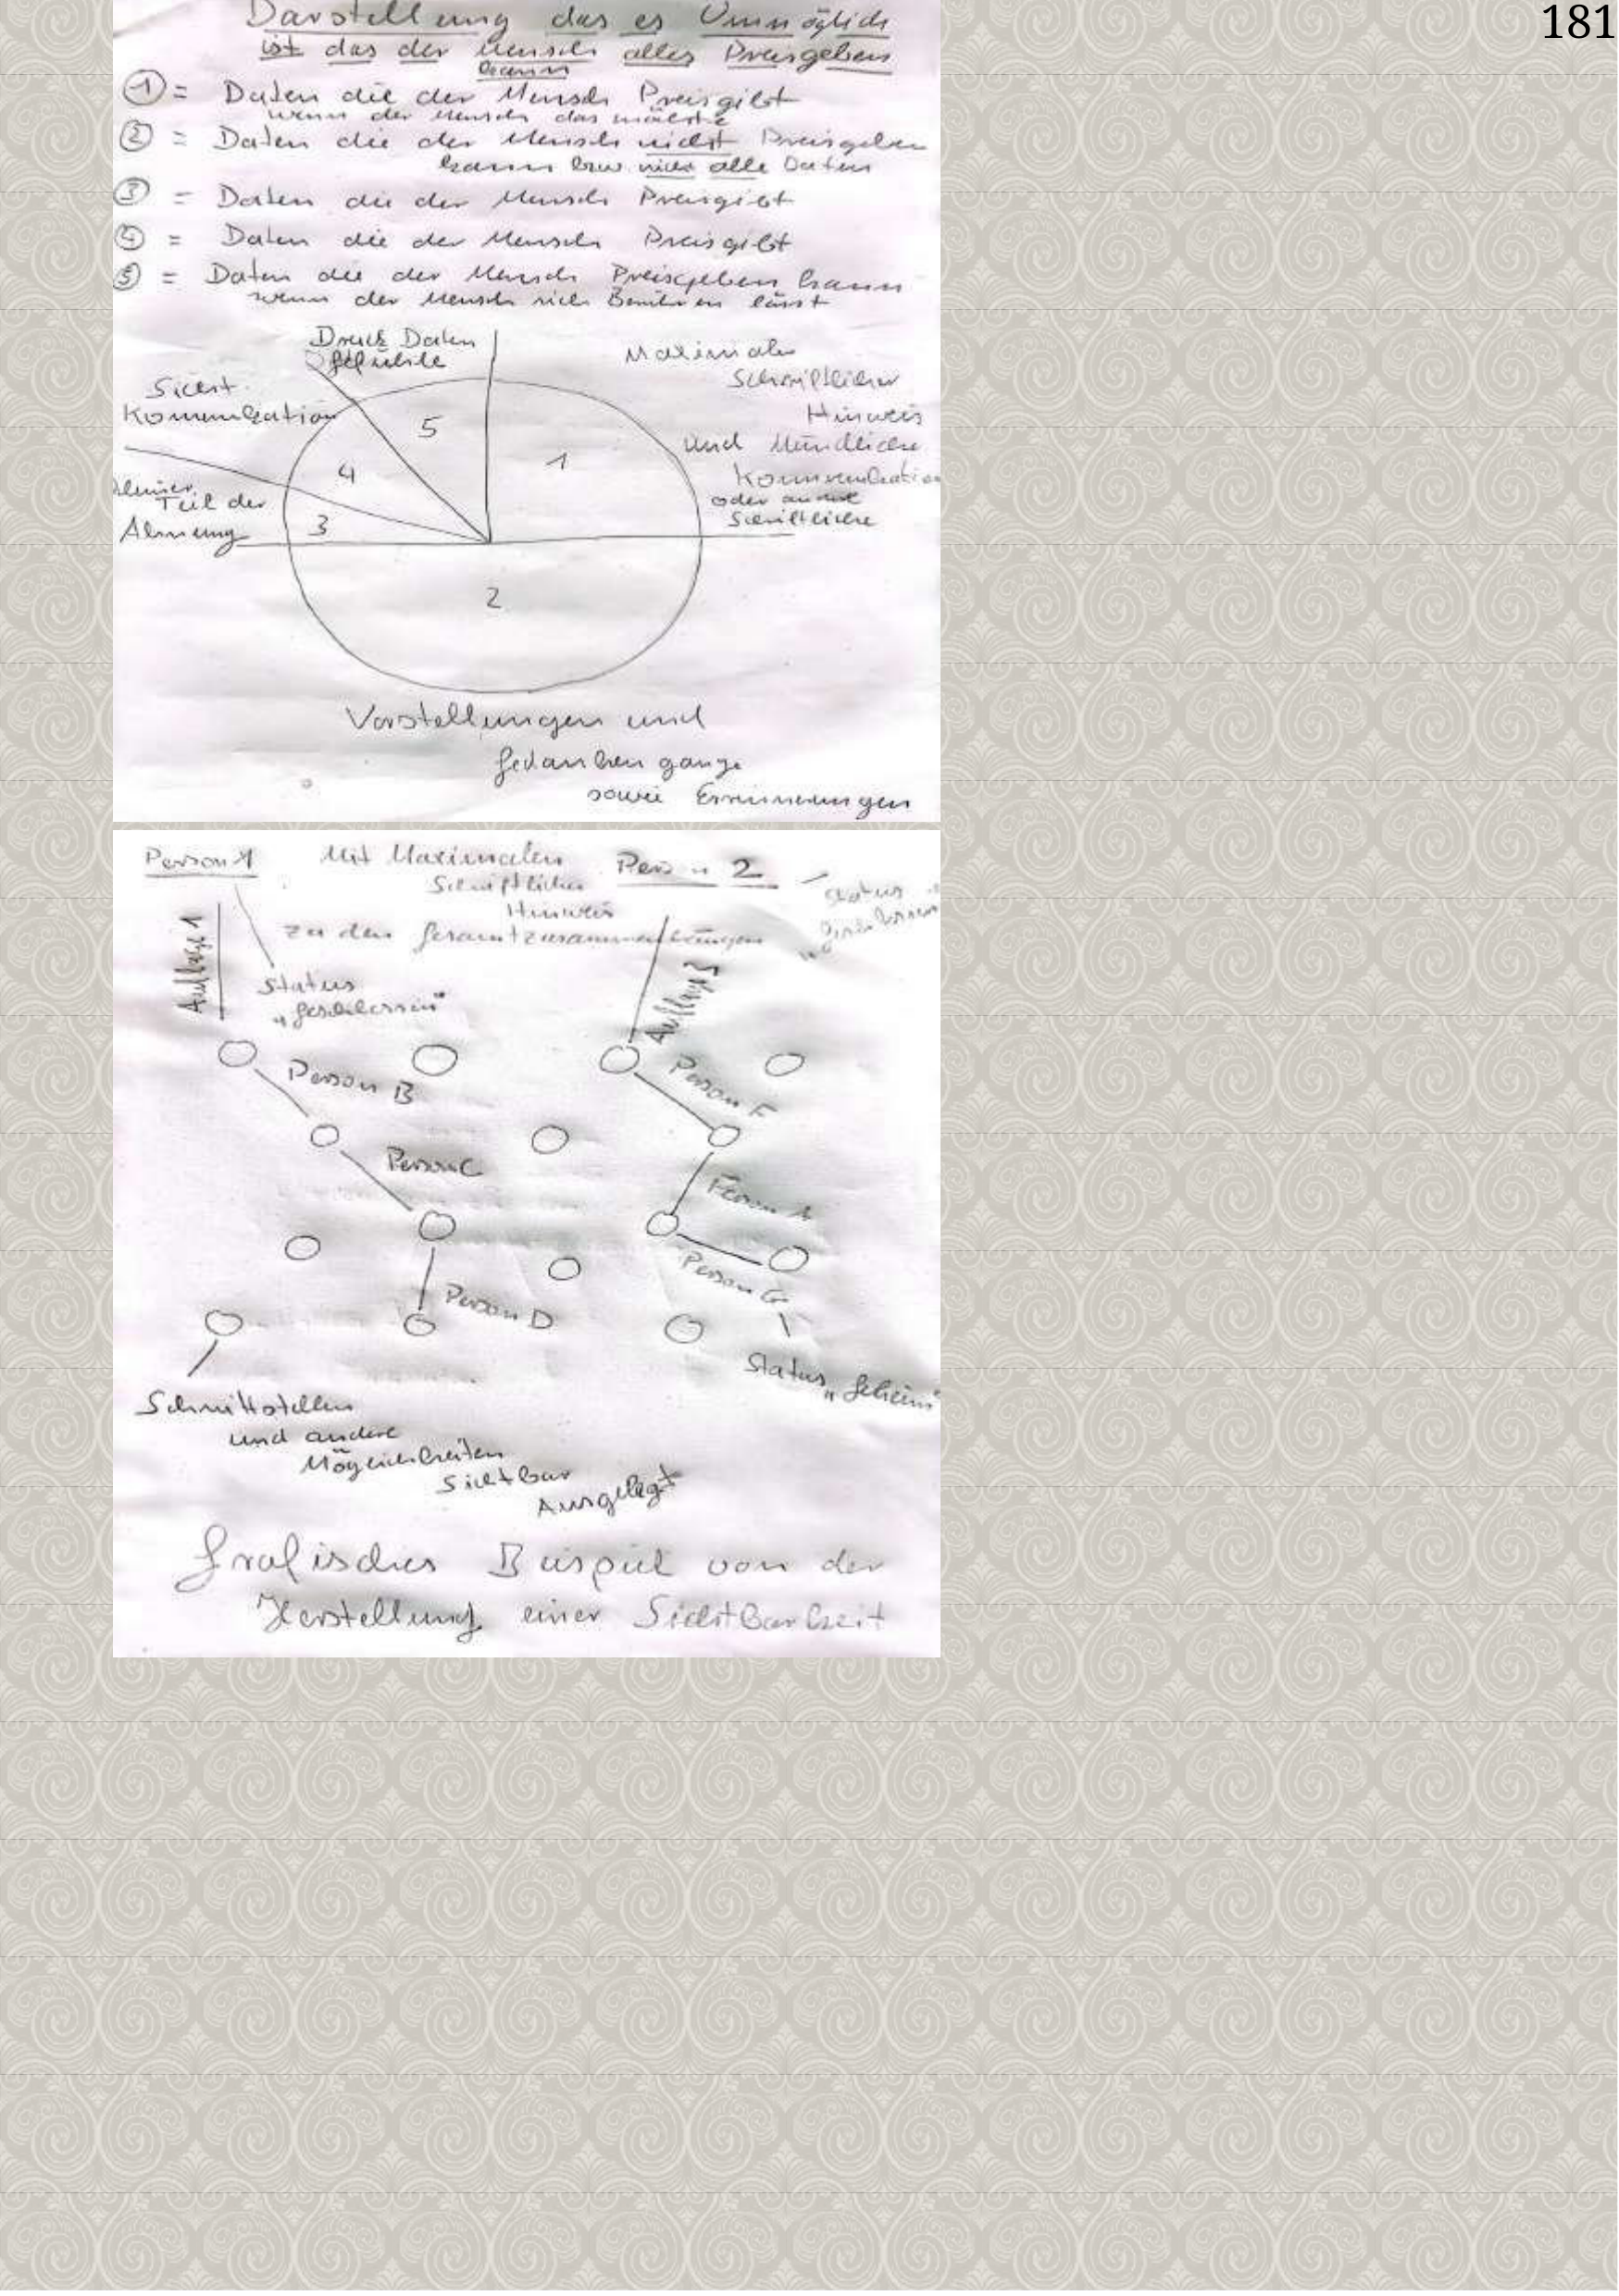 181
Darstellung das es Unmöglich
ist das der Mensch alles Preisgeben
kann
1 = Daten die der Mensch Preisgibt
wenn der Mensch das möchte
2 = Daten die der Mensch nicht Preisgeben
kann bzw nicht alle Daten
3 = Daten die der Mensch Preisgibt
4 = Daten die der Mensch Preisgibt
5 = Daten die der Mensch Preisgeben kann
wenn der Mensch sich Berühren lässt
Druck Daten
Gefühle
Maximaler
Schriftlicher
Hinweis
und Mündliche
Kommunikation
oder andere
Schriftliche
Sicht
Kommunikation
kleiner
Teil der
Ahnung
5
4
1
3
2
Vorstellungen und
Gedankengänge
sowie Erinnerungen
Person 1
Mit Maximalen
Schriftlichen
Hinweis
zu den Gesamtzusammenhängen
2
Status
Auflage 1
Status
„Geschlossen"
Auflage 3
Person B
Person F
Person C
Person G
Person D
Status „Geheim"
Schnittstellen
und andere
Möglichkeiten
Sichtbar
Ausgelegt
Grafisches Beispiel von der
Herstellung einer Sichtbarkeit